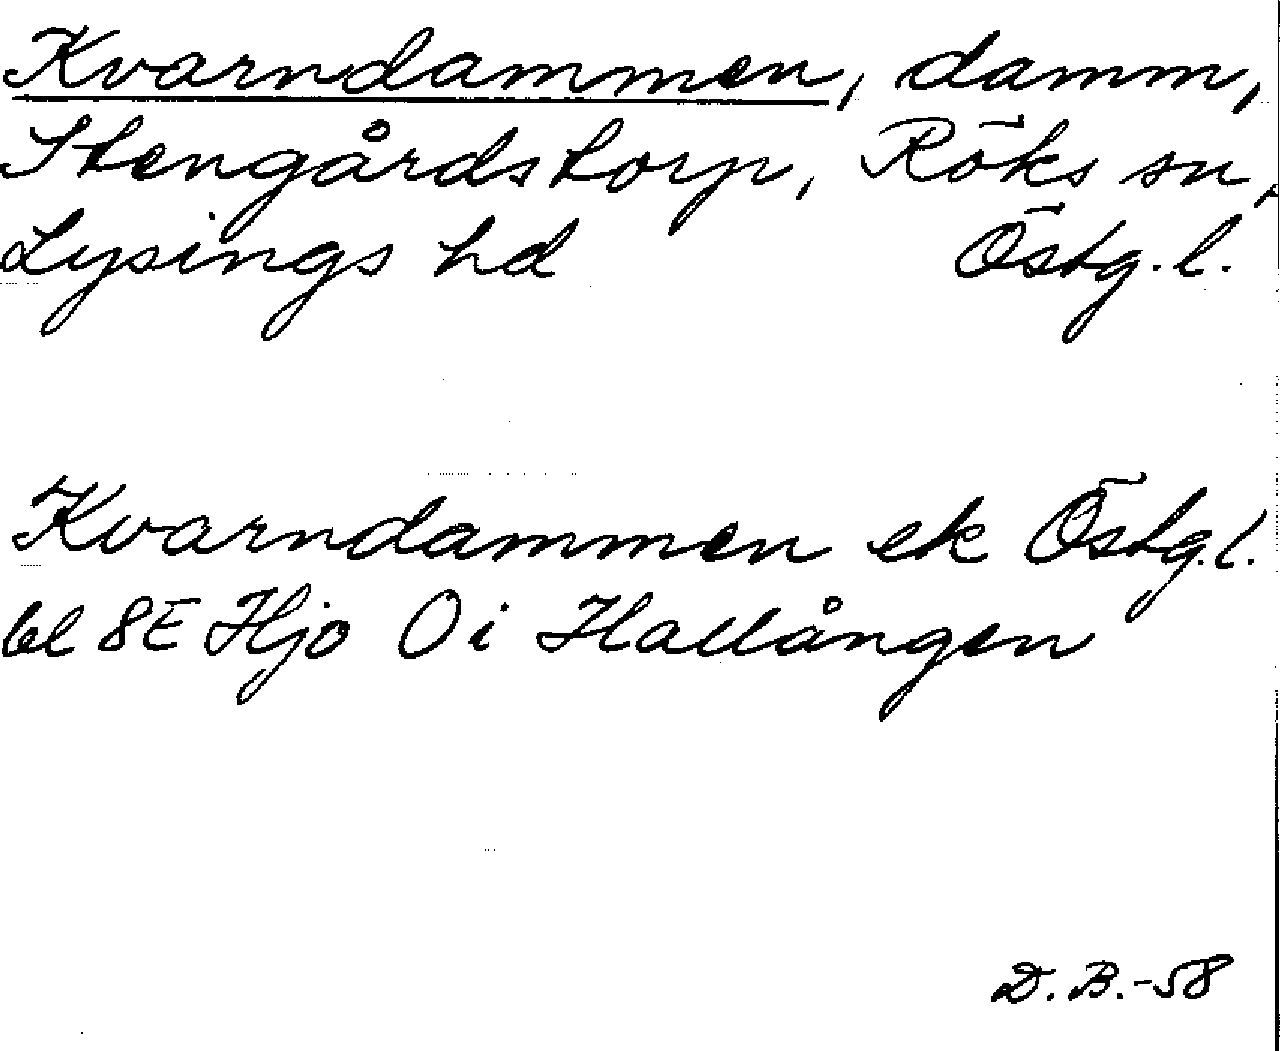 Kvarndammen, damm,
Stengårdstorp, Röks sn,
Lysings hd Östg.l.
Kvarndammen ek Östg.l.
bl 8E Hjo O i Hallången
D.B.-58